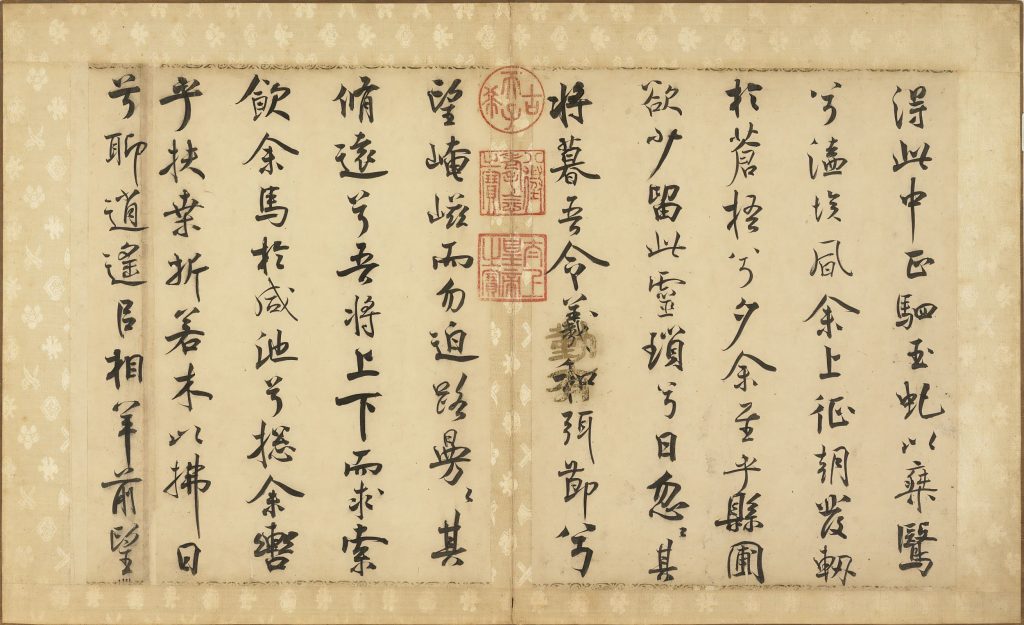 得此中正駟玉虬以椉鷖
兮溘埃風余上征朝發軔
於蒼梧兮夕余至乎縣圃
欲少留此靈瑣兮日忽〻其
將暮吾令羲和弭節兮
望崦嵫而勿迫路曼〻其
脩遠兮吾將上下而求索
飲余馬於咸池兮揔余轡
乎扶桒折若木以拂日
兮聊逍遥以相羊前望
古希天子
八徵耄念之寶
太上皇帝之寶